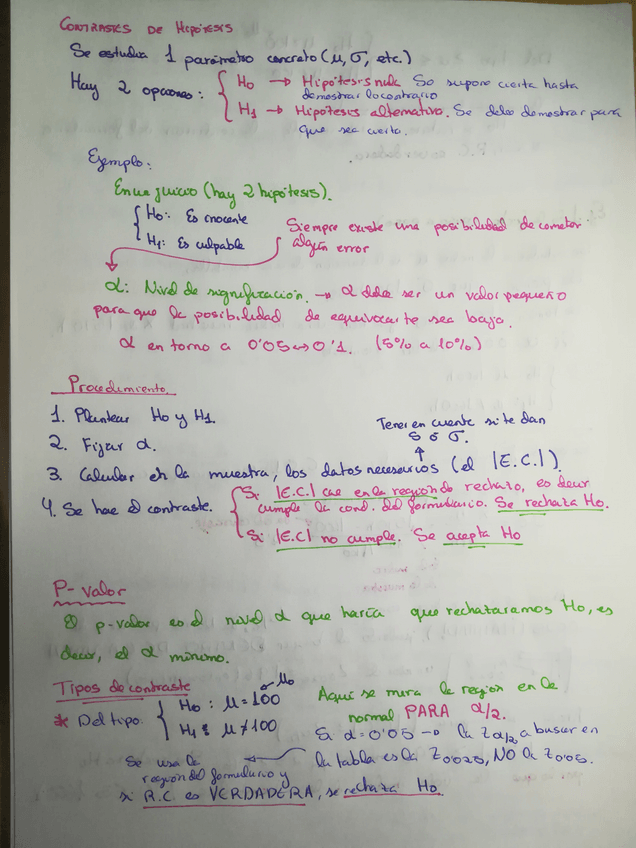 CONTRASTES DE HIPÓTESIS
Se estudia 1 parámetro concreto (μ, σ, etc.)
Hay 2 opciones: { H₀ → Hipótesis nula. Se supone cierta hasta
demostrar lo contrario
H₁ → Hipótesis alternativa. Se debe demostrar para
que sea cierta.
Ejemplo:
En un juicio (hay 2 hipótesis).
{ H₀: Es inocente
H₁: Es culpable
Siempre existe una posibilidad de cometer
algún error
α: Nivel de significación. → α debe ser un valor pequeño
para que la posibilidad de equivocarte sea baja.
α en torno a 0'05 ↔ 0'1. (5% a 10%)
Procedimiento.
1. Plantear H₀ y H₁.
2. Fijar α.
Tener en cuenta si te dan
s ó σ.
3. Calcular en la muestra, los datos necesarios (el |E.C.|).
4. Se hace el contraste. { Si |E.C.| cae en la región de rechazo, es decir
cumple la cond. del formulario. Se rechaza H₀.
Si |E.C| no cumple. Se acepta H₀
P-valor
El p-valor es el nivel α que haría que rechazaramos H₀, es
decir, el α mínimo.
Tipos de contraste
* Del tipo: { H₀: μ = 100 μ₀
H₁: μ ≠ 100
Aquí se mira la región en la
normal PARA α/2.
Si α=0'05 → la Z α/2 a buscar en
la tabla es la Z0'025, NO la Z0'05.
Se usa la
región del formulario y
si R.C. es VERDADERA, se rechaza H₀